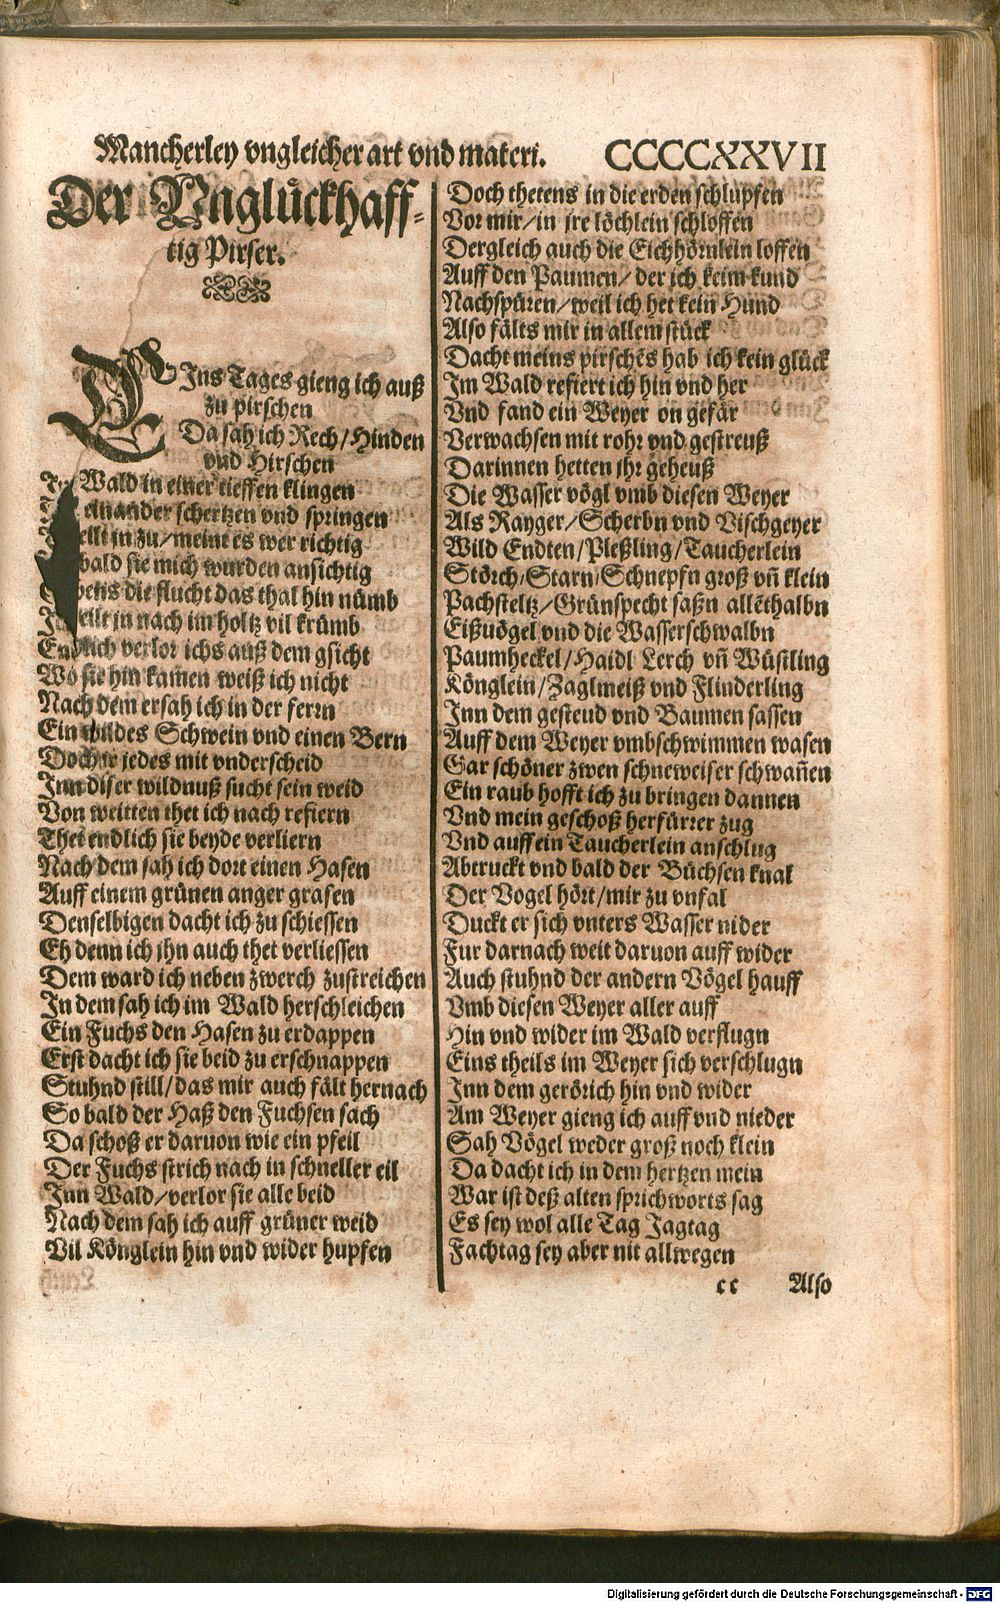 Mancherley vngleicher art vnd materi. CCCCXXVII
Der Vnglückhaff-
tig Pirser.
EIns Tages gieng ich auß
zu pirschen
Da sah ich Rech/Hinden
vnd Hirschen
Wald in einer tieffen klingen
einander schertzen vnd springen
eilt jn zu/meint es wer richtig
bald sie mich wurden ansichtig
die flucht das thal hin nümb
eilt jn nach im holtz vil krümb
Endlich verlor ichs auß dem gsicht
Wo sie hin kamen weiß ich nicht
Nach dem ersah ich in der ferrn
Ein wildes Schwein vnd einen Bern
Doch jr jedes mit vnderscheid
Inn diser wildnuß sucht sein weid
Von weitten thet ich nach refiern
Thet endlich sie beyde verliern
Nach dem sah ich dort einen Hasen
Auff einem grünen anger grasen
Denselbigen dacht ich zu schiessen
Eh denn ich jhn auch thet verliessen
Dem ward ich neben zwerch zustreichen
In dem sah ich im Wald herschleichen
Ein Fuchs den Hasen zu erdappen
Erst dacht ich sie beid zu erschnappen
Stuhnd still/das mir auch fält hernach
So bald der Haß den Fuchsen sach
Da schoß er daruon wie ein pfeil
Der Fuchs strich nach in schneller eil
Inn Wald/verlor sie alle beid
Nach dem sah ich auff grüner weid
Vil Könglein hin vnd wider hupfen
Doch thetens in die erden schlupfen
Vor mir/in jre löchlein schloffen
Dergleich auch die Eichhörnlein loffen
Auff den Paumen/der ich keim kund
Nachspüren/weil ich het kein Hund
Also fälts mir in allem stück
Dacht meins pirschēs hab ich kein glück
Im Wald refiert ich hin vnd her
Vnd fand ein Weyer on gefär
Verwachsen mit rohr vnd gestreuß
Darinnen hetten jhr geheuß
Die Wasser vögl vmb diesen Weyer
Als Rayger/Scherbn vnd Vischgeyer
Wild Endten/Pleßling/Taucherlein
Störch/Starn/Schnepfn groß vn̄ klein
Pachsteltz/Grünspecht saßn allēthalbn
Eißuögel vnd die Wasserschwalbn
Paumheckel/Haidl Lerch vn̄ Wüstling
Könglein/Zaglmeiß vnd Flinderling
Inn dem gesteud vnd Baumen sassen
Auff dem Weyer vmbschwimmen wasen
Gar schöner zwen schneweiser schwan̄en
Ein raub hofft ich zu bringen dannen
Vnd mein geschoß herfürrer zug
Vnd auff ein Taucherlein anschlug
Abtruckt vnd bald der Büchsen knal
Der Vogel hört/mir zu vnfal
Duckt er sich vnters Wasser nider
Fur darnach weit daruon auff wider
Auch stuhnd der andern Vögel hauff
Vmb diesen Weyer aller auff
Hin vnd wider im Wald verflugn
Eins theils im Weyer sich verschlugn
Inn dem gerörich hin vnd wider
Am Weyer gieng ich auff vnd nieder
Sah Vögel weder groß noch klein
Da dacht ich in dem hertzen mein
War ist deß alten sprichworts sag
Es sey wol alle Tag Jagtag
Fachtag sey aber nit allwegen
cc Also
Digitalisierung gefördert durch die Deutsche Forschungsgemeinschaft - DFG